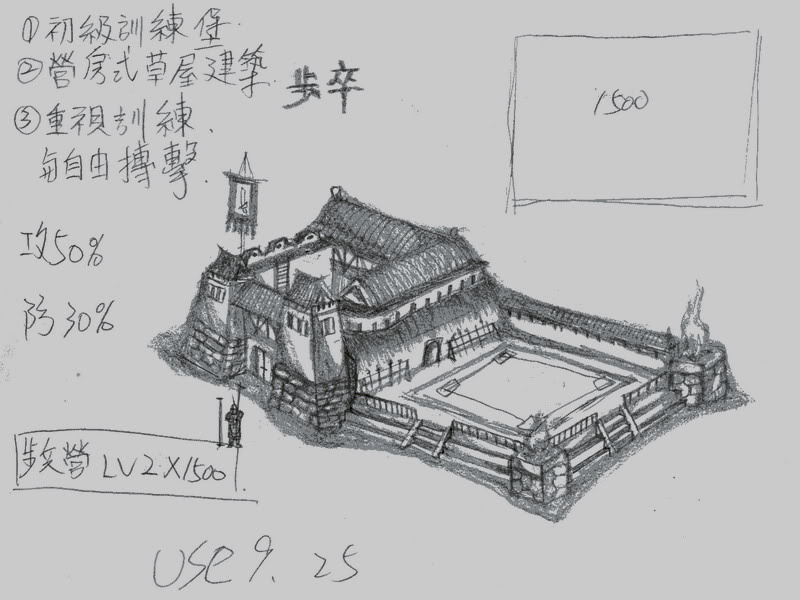 ①初級訓練堡.
②營房式草屋建築.
③重視訓練、
每自由搏擊.
步卒
1500
攻50%
防30%
步兵營 LV2X1500
USE 9. 25